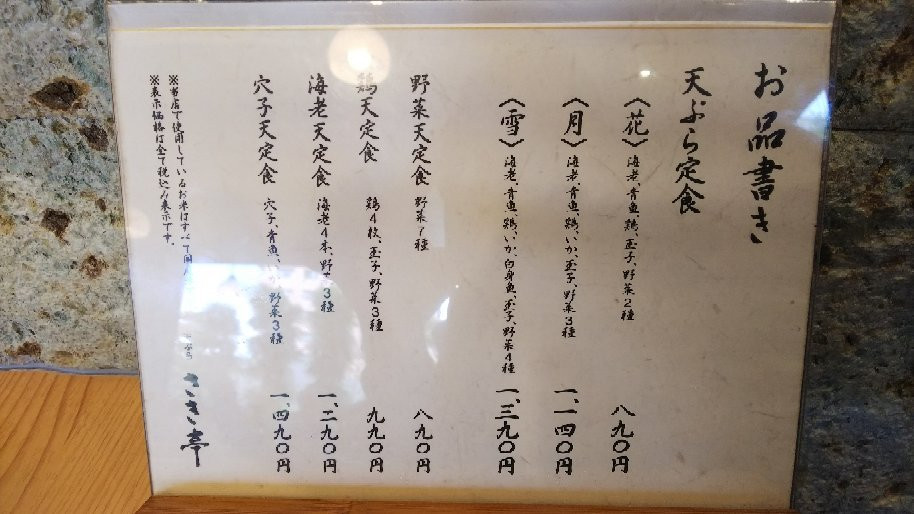 お品書き
天ぷら定食
〈花〉海老、青魚、鶏、玉子、野菜2種 八九〇円
〈月〉海老、青魚、鶏、いか、玉子、野菜3種 一、一四〇円
〈雪〉海老、青魚、鶏、いか、白身魚、玉子、野菜4種 一、三九〇円
野菜天定食 野菜7種 八九〇円
鶏天定食 鶏4枚、玉子、野菜3種 九九〇円
海老天定食 海老4本、野菜3種 一、二九〇円
穴子天定食 穴子、青魚、野菜3種 一、四九〇円
※当店で使用しているお米はすべて国
※表示価格は全て税込み表示です。
さき亭